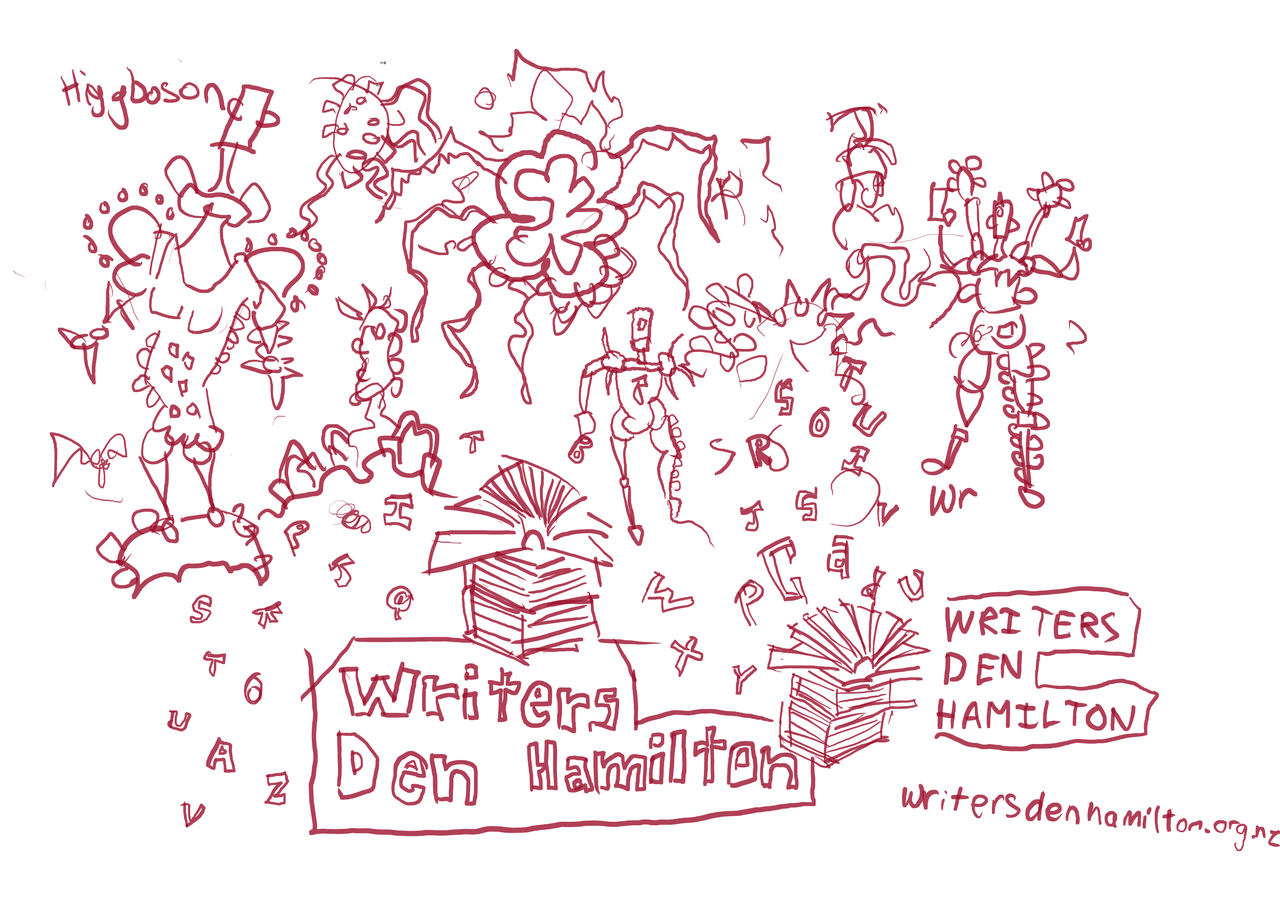 Higgboson
Wr
Writers
Den Hamilton
WRITERS
DEN
HAMILTON
writersdenhamilton.org.nz
T
I
P
J
Q
S
T
6
U
A
Z
V
S
O
U
I
S
R
J
S
V
G
a
d
U
P
X
Y